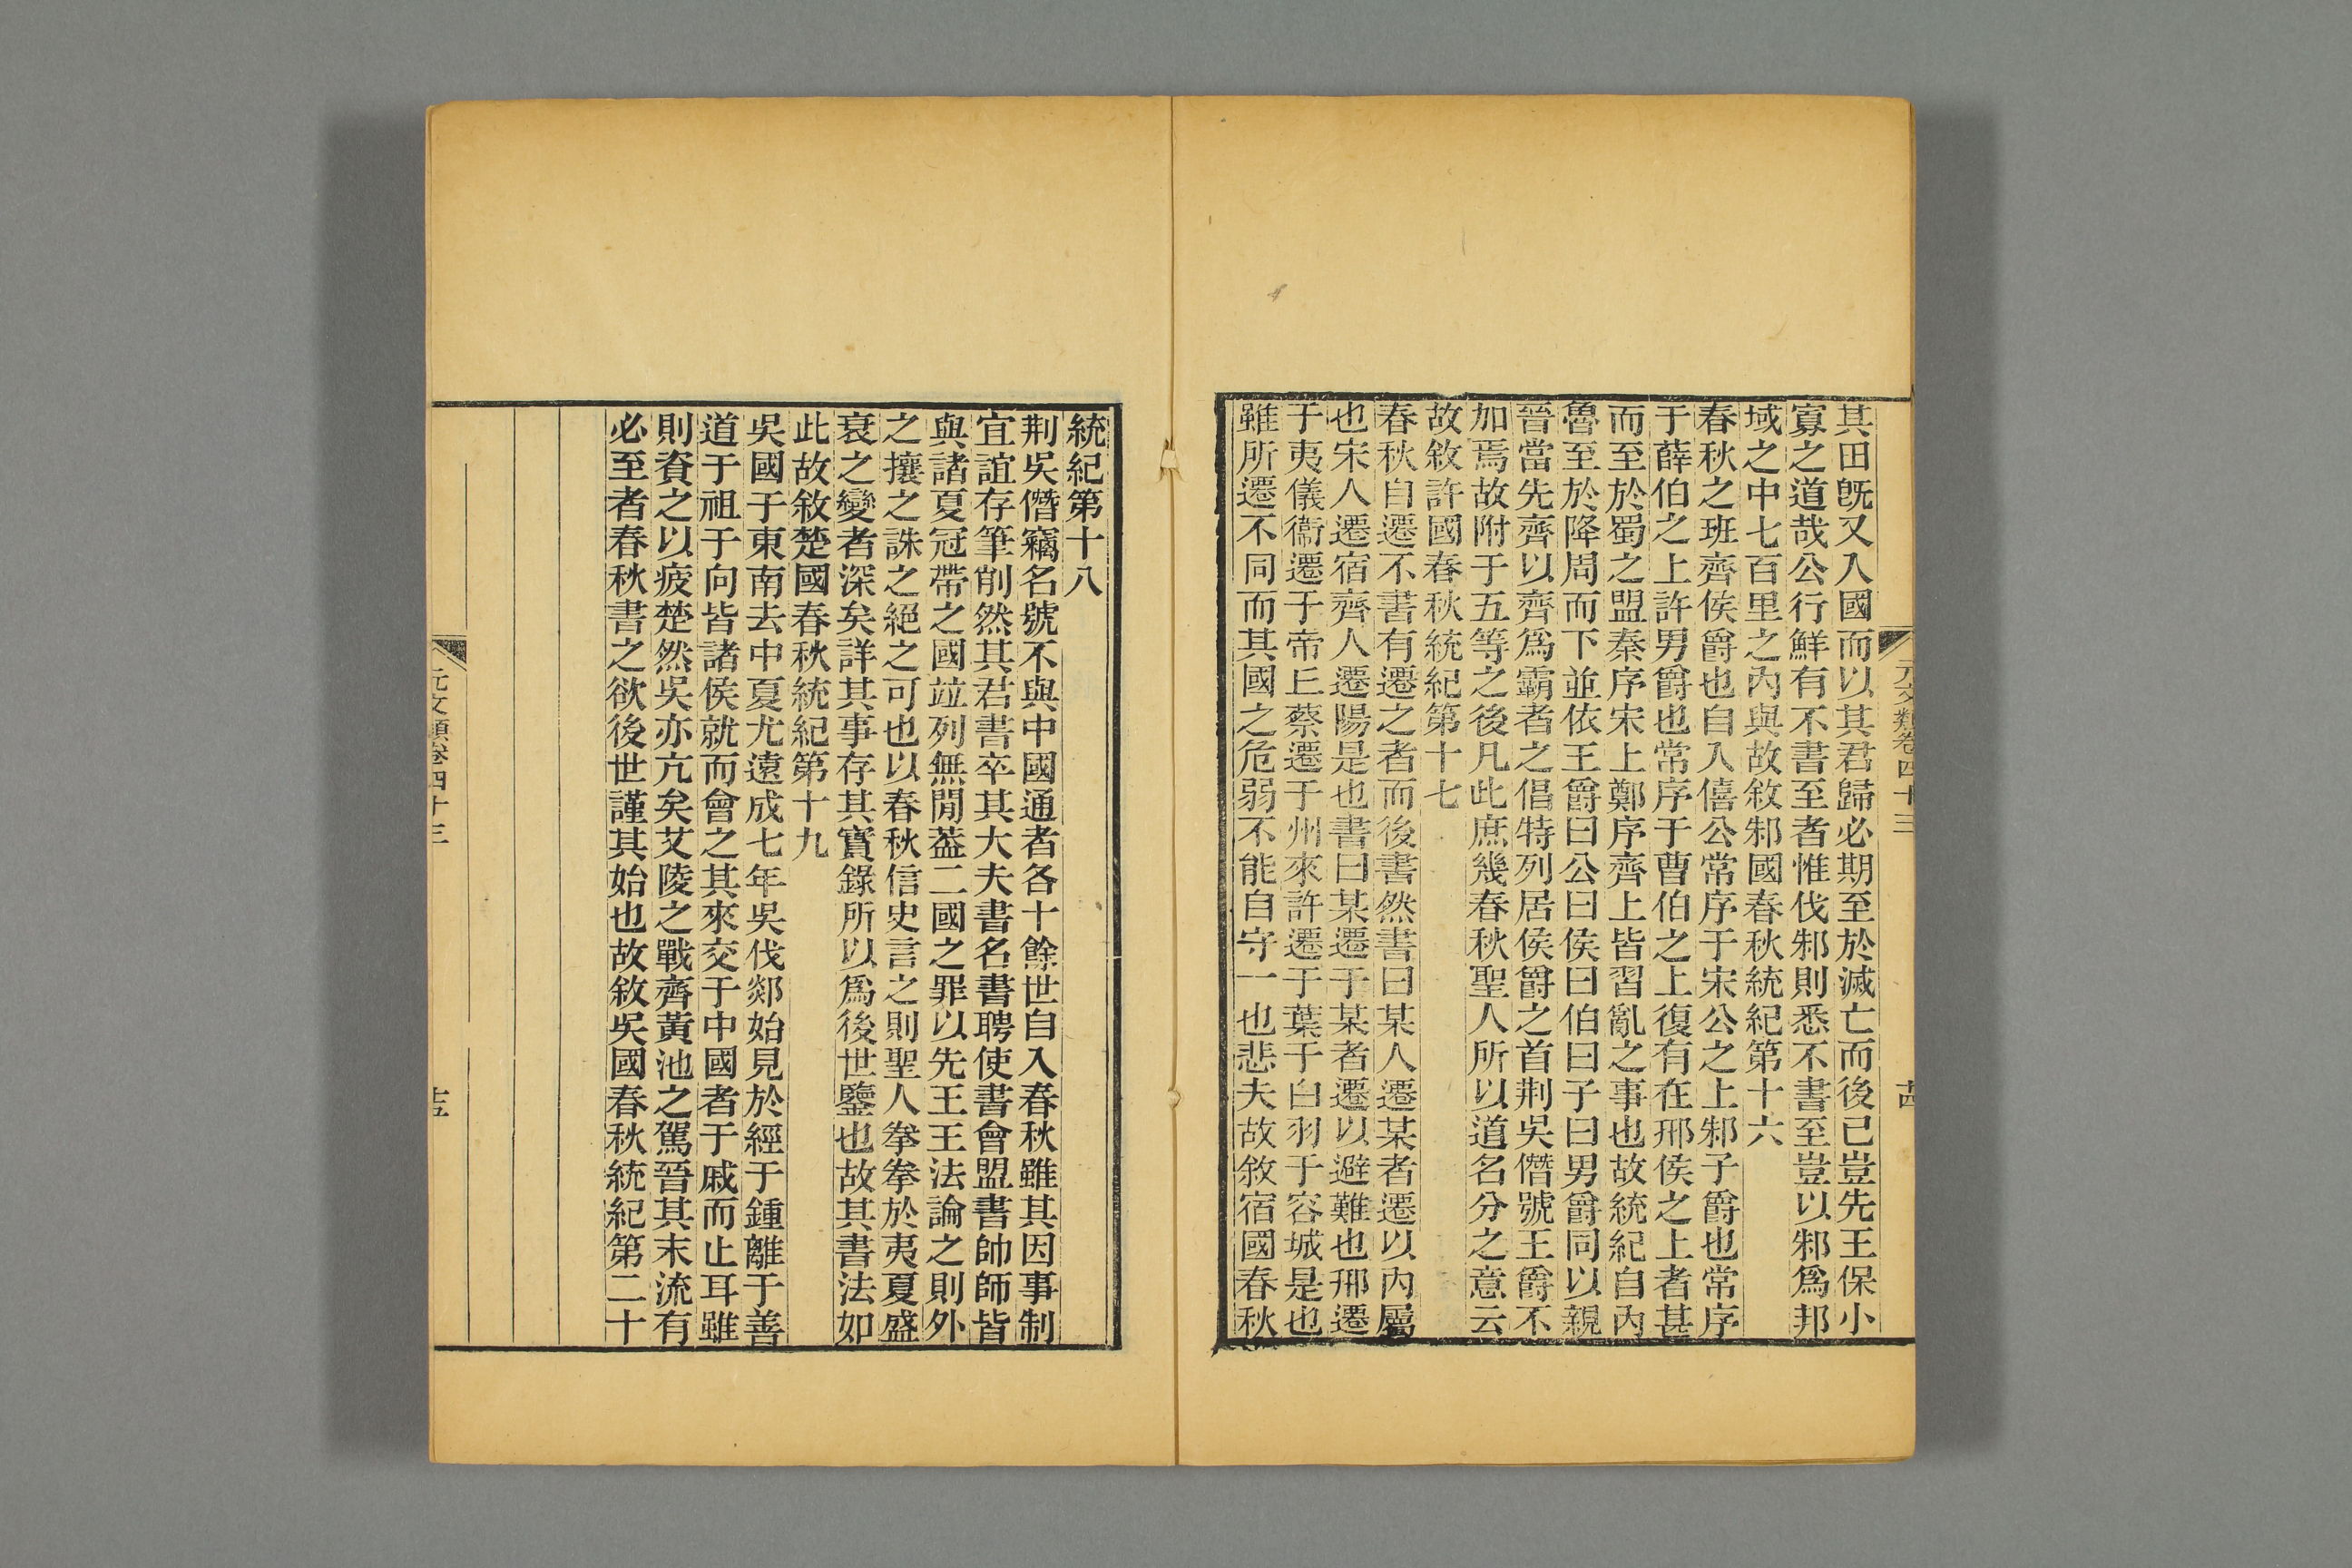 元文類卷四十三
十四
其田旣又入國而以其君歸必期至於滅亡而後已豈先王保小
寡之道哉公行鮮有不書至者惟伐邾則悉不書至豈以邾爲邦
域之中七百里之內與故敘邾國春秋統紀第十六
春秋之班齊侯爵也自入僖公常序于宋公之上邾子爵也常序
于薛伯之上許男爵也常序于曹伯之上復有在邢侯之上者甚
而至於蜀之盟秦序宋上鄭序齊上皆習亂之事也故統紀自內
魯至於降周而下並依王爵曰公曰侯曰伯曰子曰男爵同以親
晉當先齊以齊爲霸者之倡特列居侯爵之首荆吳僭號王爵不
加焉故附于五等之後凡此庶幾春秋聖人所以道名分之意云
故敘許國春秋統紀第十七
春秋自遷不書有遷之者而後書然書曰某人遷某者遷以內屬
也宋人遷宿齊人遷陽是也書曰某遷于某者遷以避難也邢遷
于夷儀衞遷于帝丘蔡遷于州來許遷于葉于白羽于容城是也
雖所遷不同而其國之危弱不能自守一也悲夫故敘宿國春秋
統紀第十八
荆吳僭竊名號不與中國通者各十餘世自入春秋雖其因事制
宜誼存筆削然其君書卒其大夫書名書聘使書會盟書帥師皆
與諸夏冠帶之國竝列無閒葢二國之罪以先王王法論之則外
之攘之誅之絕之可也以春秋信史言之則聖人拳拳於夷夏盛
衰之變者深矣詳其事存其實錄所以爲後世鑒也故其書法如
此故敘楚國春秋統紀第十九
吳國于東南去中夏尤遠成七年吳伐郯始見於經于鍾離于善
道于祖于向皆諸侯就而會之其來交于中國者于戚而止耳雖
則資之以疲楚然吳亦亢矣艾陵之戰齊黃池之駕晉其末流有
必至者春秋書之欲後世謹其始也故敘吳國春秋統紀第二十
元文類卷四十三
十五